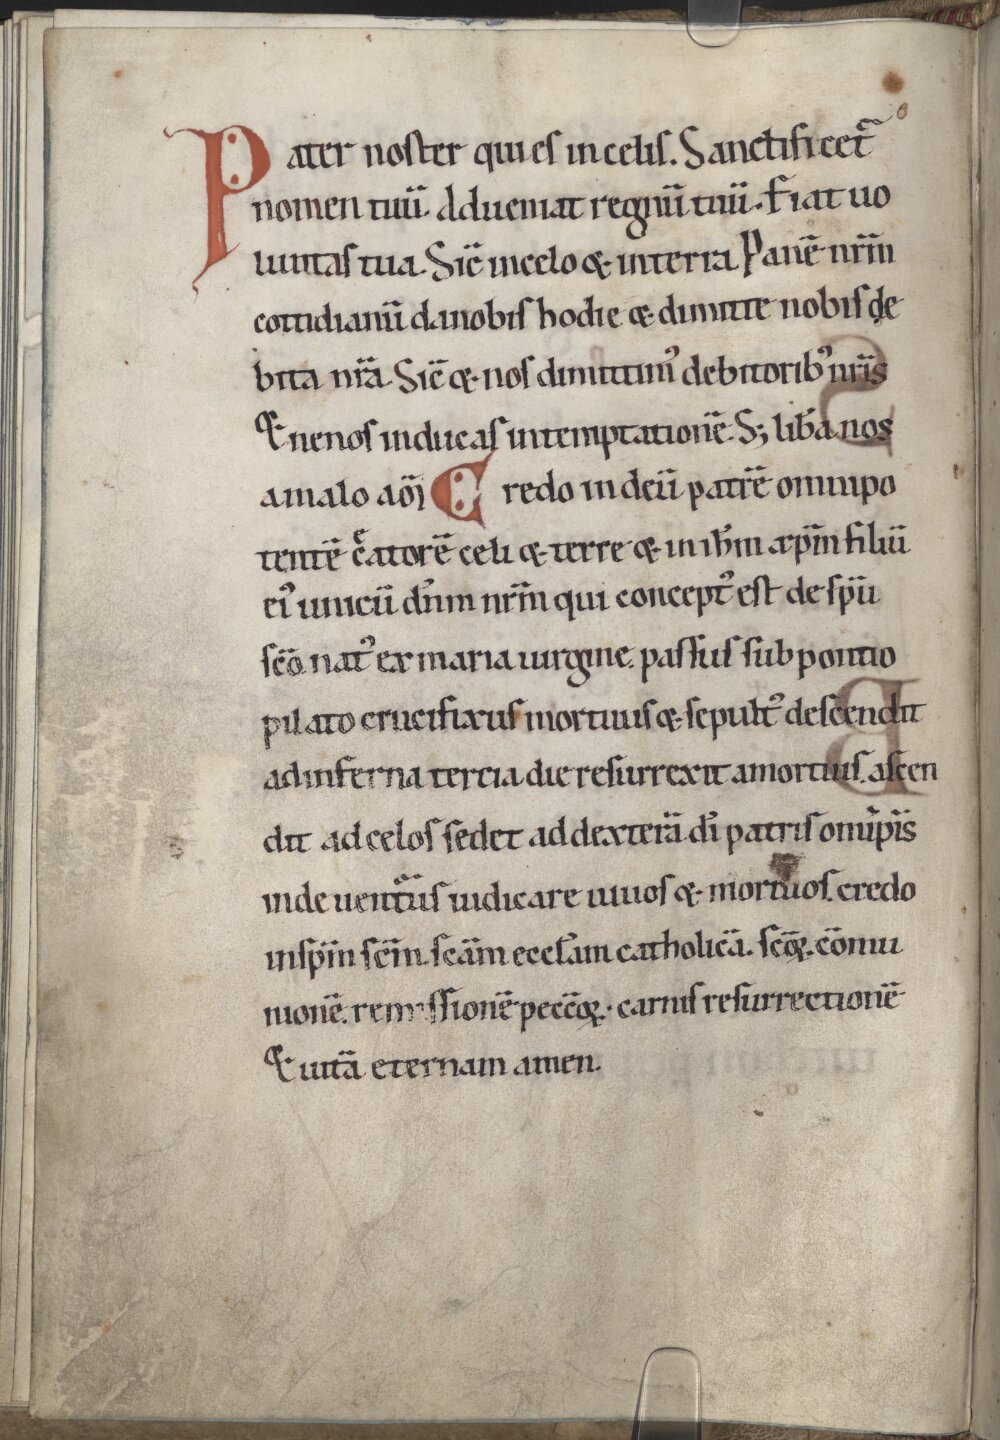 Pater noster qui es in celis. Sanctificet᷑
nomen tuū. Adueniat regnū tuū. Fiat uo
luntas tua. Sic̄ in celo & in terra Panē nr̄m
cottidianū da nobis hodie & dimitte nobis de
bita nr̄a. Sic̄ & nos dimittimꝰ debitoribꝰ nr̄is
Et ne nos inducas in temptationē. S; lib̄a nos
a malo am̄ Credo in deū patrē omnipo
tentē cͤatorē celi & terre & in ih̄m xp̄m filiū
eiꝰ unicū dn̄m nr̄m qui conceptꝰ est de sp̄u
sc̄o natꝰ ex maria uirgine. passus sub pontio
pilato crucifixus mortuus & sepultꝰ descendit
ad inferna tercia die resurrexit a mortuis. ascen
dit ad celos sedet ad dexterā dī patris omip̄is
inde uenturus iudicare uiuos & mortuos. credo
in sp̄m sc̄m. scām eccl̄am catholicā. sc̄oꝝ. cōmu
nionē. remissionē pecc̄oꝝ. carnis resurrectionē
Et uitā eternam amen.